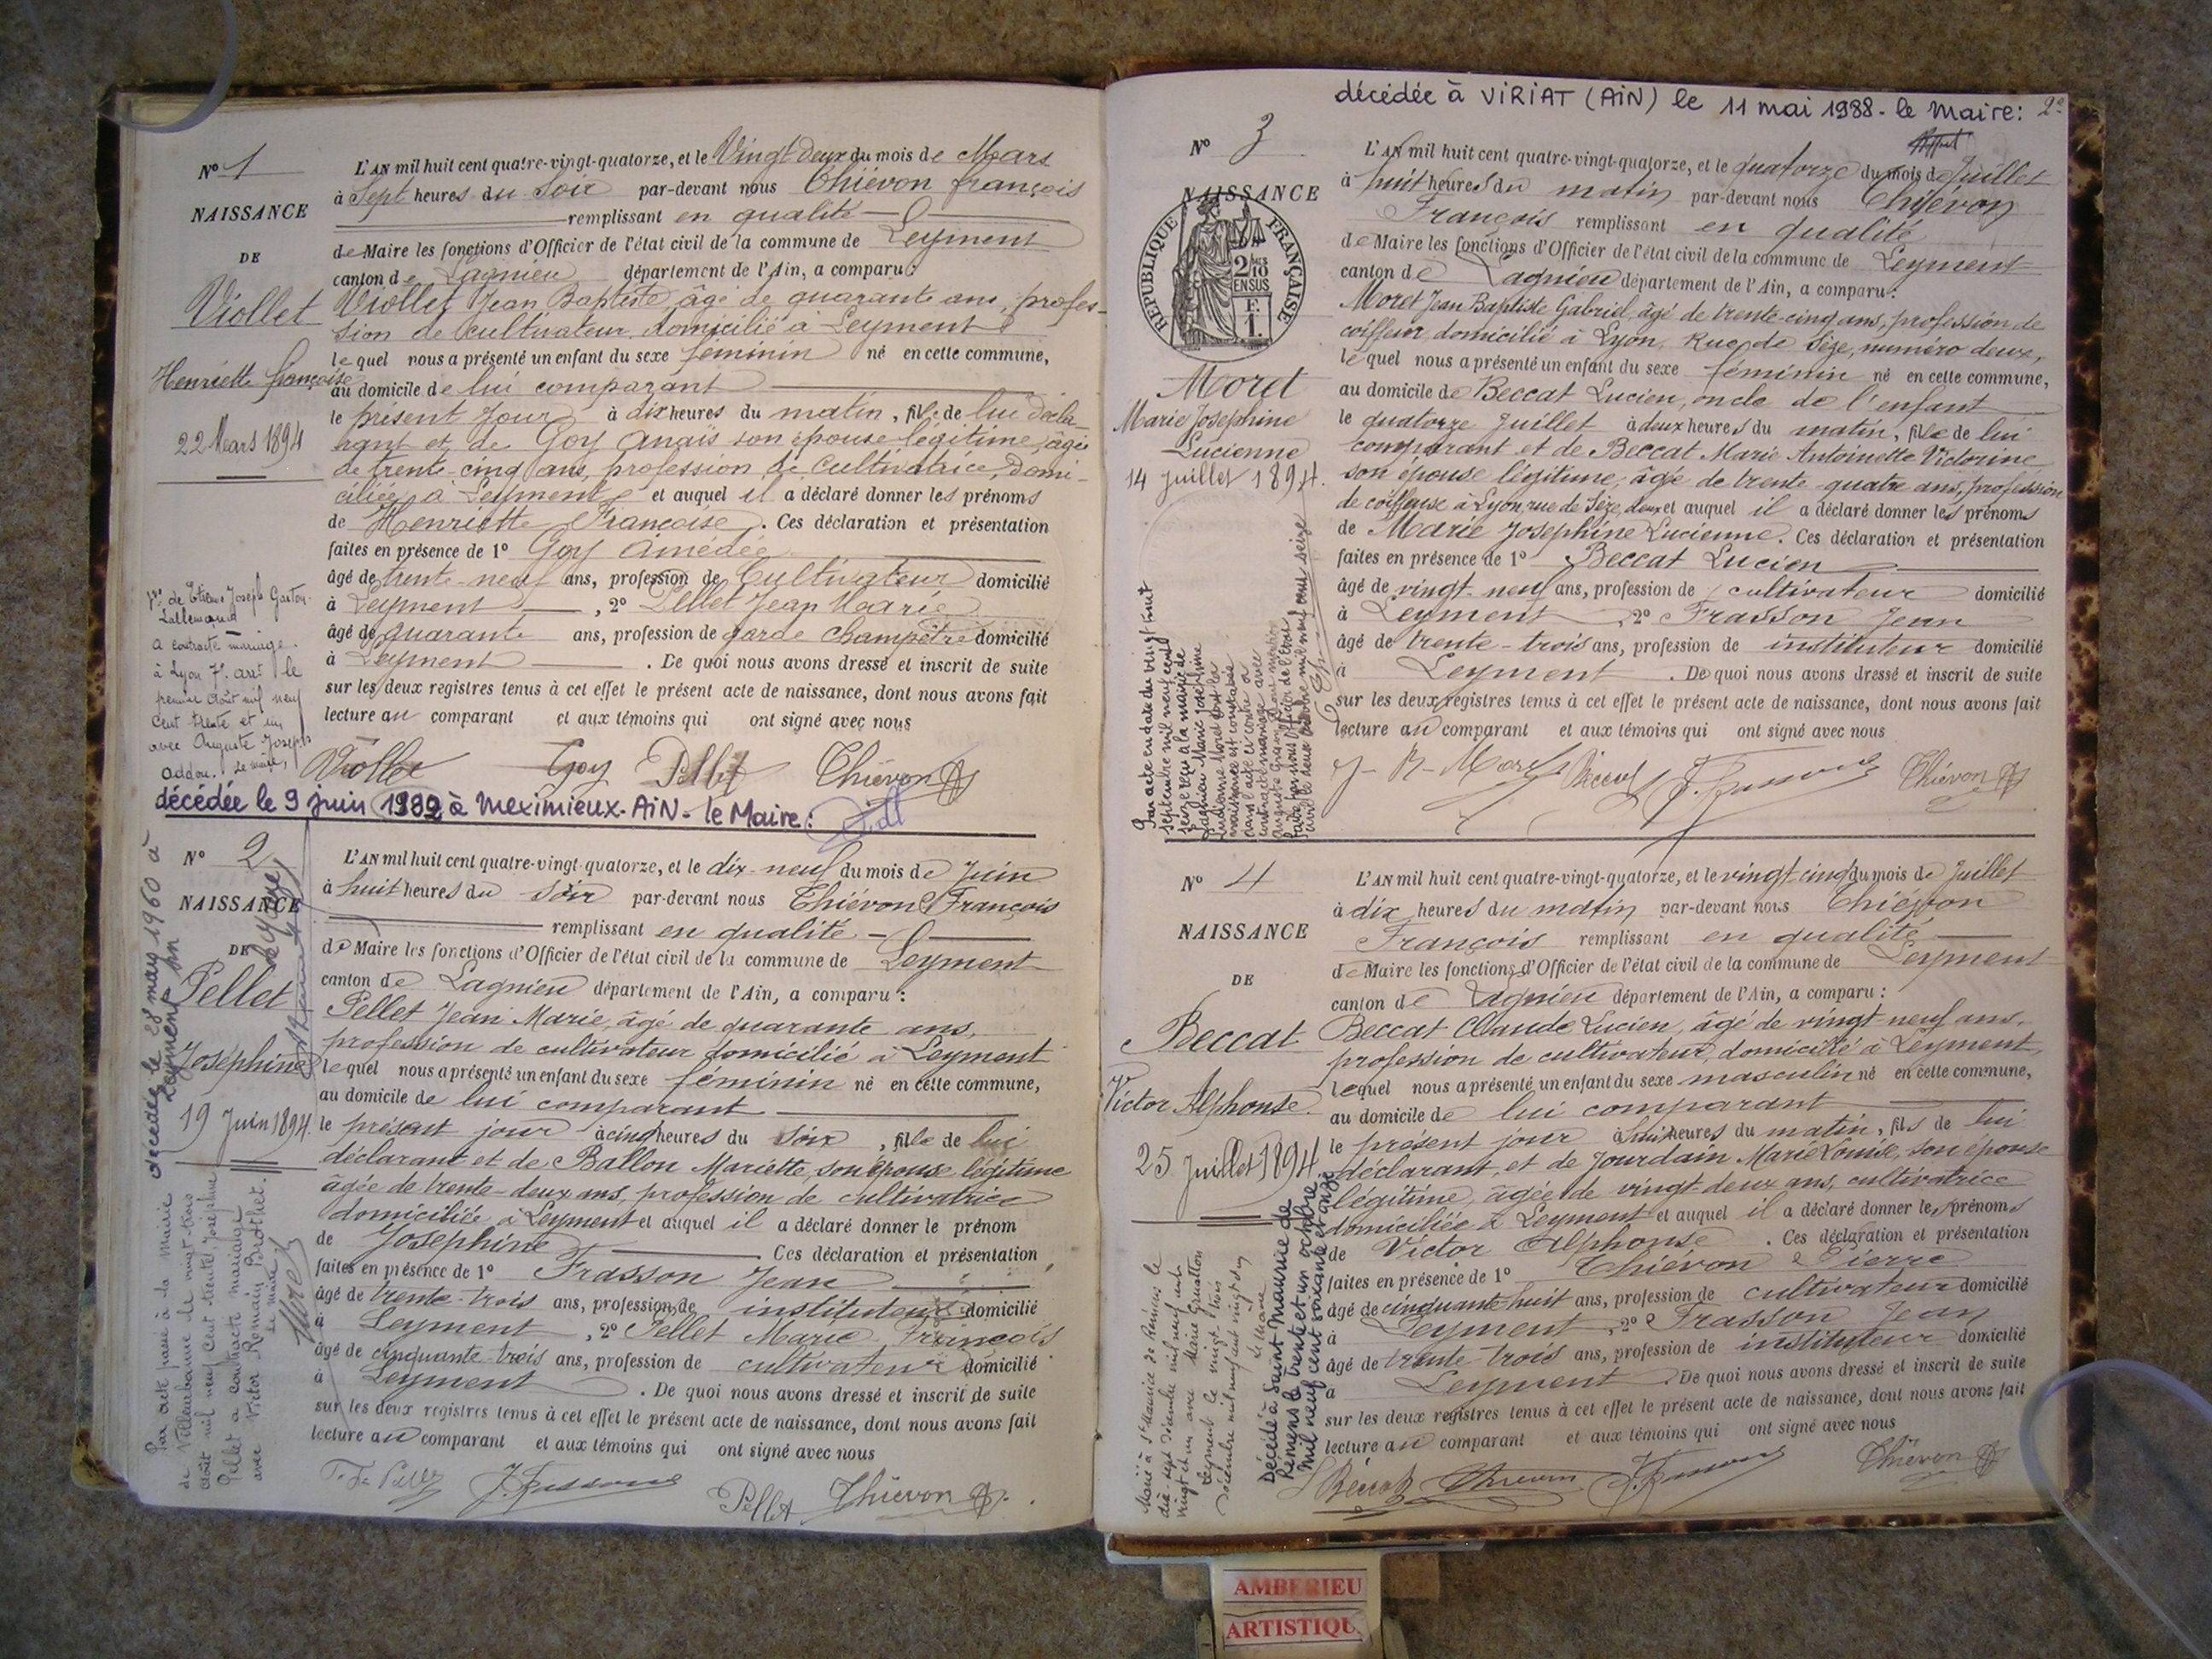 N° 1
NAISSANCE
DE
Viollet
Henriette françoise
22 Mars 1894
L'AN mil huit cent quatre-vingt-quatorze, et le Vingt deux du mois de Mars
à Sept heures du Soir par-devant nous Thiévon françois
remplissant en qualité
de Maire les fonctions d'Officier de l'état civil de la commune de Leyment
canton de Lagnieu département de l'Ain, a comparu :
Viollet Jean Baptiste, âgé de quarante ans, profes-
sion de cultivateur domicilié à Leyment
lequel nous a présenté un enfant du sexe féminin né en cette commune,
au domicile de lui comparant
le présent jour à dix heures du matin, fille de lui décla-
rant et de Goy Anaïs son épouse légitime, âgée
de trente-cinq ans, profession de cultivatrice, domi-
ciliée à Leyment et auquel il a déclaré donner les prénoms
de Henriette Françoise. Ces déclaration et présentation
faites en présence de 1° Goy Amédée
âgé de trente-neuf ans, profession de Cultivateur domicilié
à Leyment, 2° Pellet Jean Marie
âgé de quarante ans, profession de garde champêtre domicilié
à Leyment. De quoi nous avons dressé et inscrit de suite
sur les deux registres tenus à cet effet le présent acte de naissance, dont nous avons fait
lecture au comparant et aux témoins qui ont signé avec nous
Viollet Goy Pellet Thiévon
de Etienne Joseph Gaston
Lallemand
a contracté mariage
à Lyon 7e arrt le
premier août mil neuf
cent trente et un
avec Auguste Joseph
Addou. Le maire,
décédée le 9 juin 1982 à Meximieux-AiN- le Maire:
N° 2
NAISSANCE
DE
Pellet
Josephine
19 Juin 1894.
décédée le 28 mars 1960 à
Leyment Ain
L'AN mil huit cent quatre-vingt-quatorze, et le dix-neuf du mois de Juin
à huit heures du soir par-devant nous Thiévon François
remplissant en qualité
de Maire les fonctions d'Officier de l'état civil de la commune de Leyment
canton de Lagnieu département de l'Ain, a comparu :
Pellet Jean Marie, âgé de quarante ans,
profession de cultivateur domicilié à Leyment
lequel nous a présenté un enfant du sexe féminin né en cette commune,
au domicile de lui comparant
le présent jour à cinq heures du soir, fille de lui
déclarant et de Ballon Mariette, son épouse légitime
âgée de trente-deux ans, profession de cultivatrice
domiciliée à Leyment et auquel il a déclaré donner le prénom
de Josephine. Ces déclaration et présentation
faites en présence de 1° Frasson Jean
âgé de trente-trois ans, profession de instituteur domicilié
à Leyment, 2° Pellet Marie François
âgé de cinquante-trois ans, profession de cultivateur domicilié
à Leyment. De quoi nous avons dressé et inscrit de suite
sur les deux registres tenus à cet effet le présent acte de naissance, dont nous avons fait
lecture au comparant et aux témoins qui ont signé avec nous
J. Frasson Pellet Thiévon
Par acte passé à la Mairie
de Villeurbanne le vingt-trois
août mil neuf cent trente, Joséphine
Pellet a contracté mariage
avec Victor Romain Brothet.
Le maire
décédée à ViRiAT (AiN) le 11 mai 1988 - le Maire:
2e
N° 3
NAISSANCE
REPUBLIQUE FRANÇAISE
2/10
EN SUS
F.
1.
Moret
Marie Josephine
Lucienne
14 Juillet 1894.
L'AN mil huit cent quatre-vingt-quatorze, et le quatorze du mois de Juillet
à huit heures du matin par-devant nous Thiévon
François remplissant en qualité
de Maire les fonctions d'Officier de l'état civil de la commune de Leyment
canton de Lagnieu département de l'Ain, a comparu :
Moret Jean Baptiste Gabriel, âgé de trente-cinq ans, profession de
coiffeur domicilié à Lyon, Rue de Sèze, numéro deux,
lequel nous a présenté un enfant du sexe féminin né en cette commune,
au domicile de Beccat Lucien, oncle de l'enfant
le quatorze Juillet à deux heures du matin, fille de lui
comparant et de Beccat Marie Antoinette Victorine
son épouse légitime, âgée de trente-quatre ans, profession
de coiffeuse à Lyon, rue de Sèze, deux et auquel il a déclaré donner les prénoms
de Marie Josephine Lucienne. Ces déclaration et présentation
faites en présence de 1° Beccat Lucien
âgé de vingt-neuf ans, profession de cultivateur domicilié
à Leyment 2° Frasson Jean
âgé de trente-trois ans, profession de instituteur domicilié
à Leyment. De quoi nous avons dressé et inscrit de suite
sur les deux registres tenus à cet effet le présent acte de naissance, dont nous avons fait
lecture au comparant et aux témoins qui ont signé avec nous
J-B-Moret Beccat J. Frasson Thiévon
Par acte en date du vingt huit
septembre mil neuf cent
seize reçu à la mairie de
Lagnieu Marie Josephine
Lucienne Moret dont la
naissance est constatée
dans l'acte ci contre a
contracté mariage avec
N° 4
NAISSANCE
DE
Beccat
Victor Alphonse.
25 Juillet 1894.
L'AN mil huit cent quatre-vingt-quatorze, et le vingt-cinq du mois de Juillet
à dix heures du matin par-devant nous Thiévon
François remplissant en qualité
de Maire les fonctions d'Officier de l'état civil de la commune de Leyment
canton de Lagnieu département de l'Ain, a comparu :
Beccat Claude Lucien, âgé de vingt-neuf ans,
profession de cultivateur, domicilié à Leyment,
lequel nous a présenté un enfant du sexe masculin né en cette commune,
au domicile de lui comparant
le présent jour à huit heures du matin, fils de lui
déclarant, et de Jourdain Marie Louise, son épouse
légitime, âgée de vingt-deux ans, cultivatrice
domiciliée à Leyment et auquel il a déclaré donner les prénoms
de Victor Alphonse. Ces déclaration et présentation
faites en présence de 1° Thiévon Pierre
âgé de cinquante-huit ans, profession de cultivateur domicilié
à Leyment, 2° Frasson Jean
âgé de trente trois ans, profession de instituteur domicilié
à Leyment. De quoi nous avons dressé et inscrit de suite
sur les deux registres tenus à cet effet le présent acte de naissance, dont nous avons fait
lecture au comparant et aux témoins qui ont signé avec nous
Beccat Thiévon J. Frasson Thiévon
Marié à St Maurice de Rémens le
dix-sept décembre mil neuf cent
vingt et un avec Marie
Leyment le vingt-trois
décembre mil neuf cent vingt un
Le Maire
Décédé à Saint Maurice de
Rémens le trente et un octobre
mil neuf cent soixante et onze
AMBERIEU
ARTISTIQU